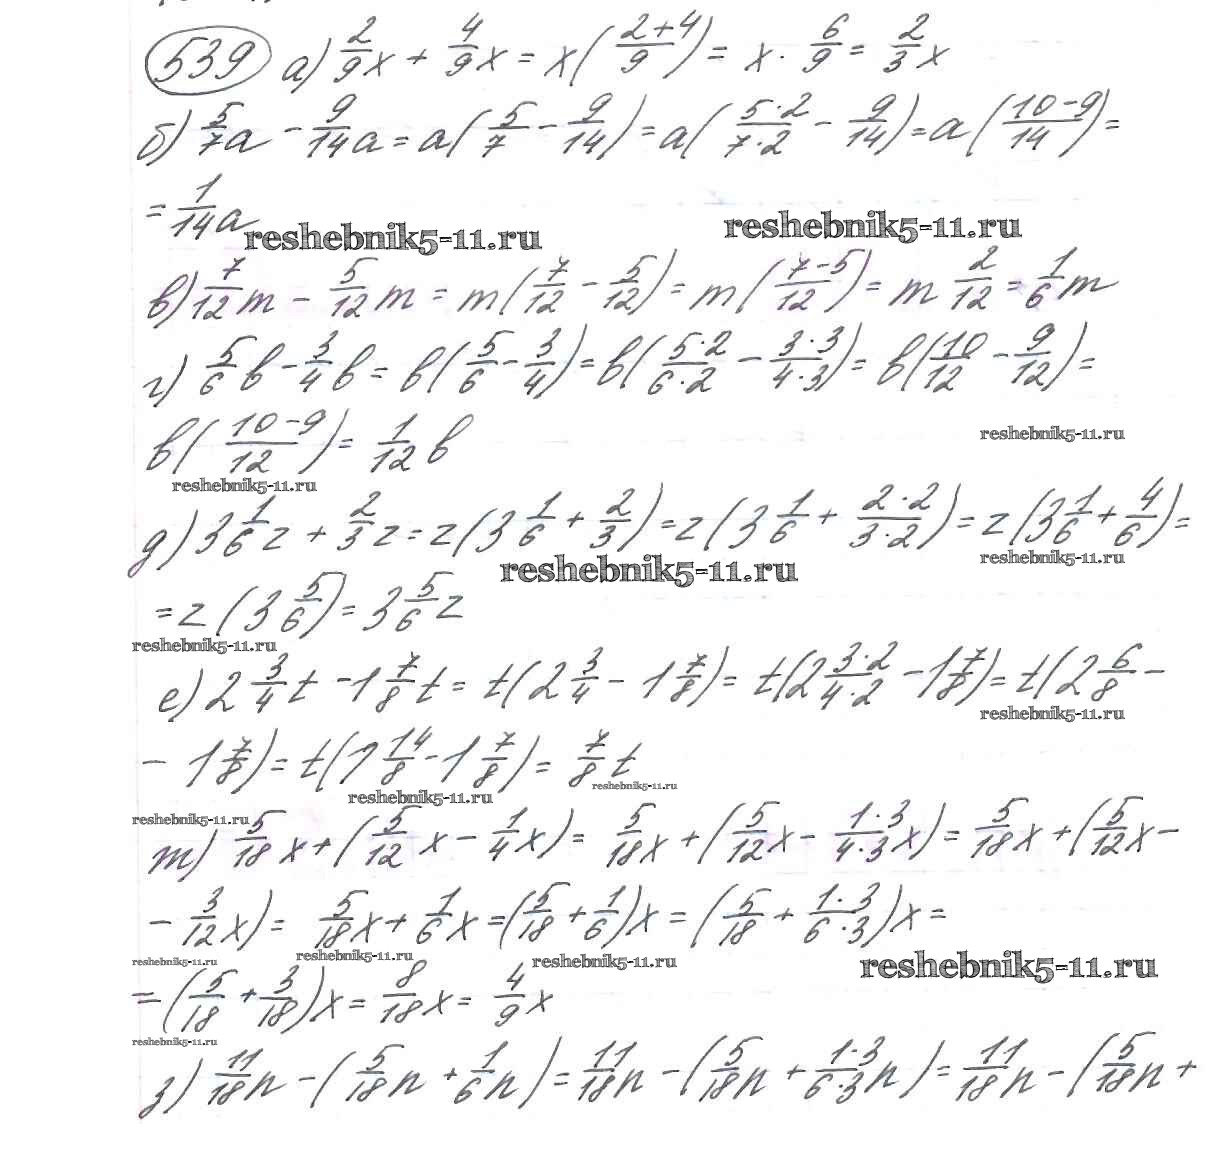 539 а) 2/9 x + 4/9 x = x((2+4)/9) = x · 6/9 = 2/3 x
б) 5/7 a - 9/14 a = a(5/7 - 9/14) = a((5·2)/(7·2) - 9/14) = a((10-9)/14) =
= 1/14 a
reshebnik5-11.ru reshebnik5-11.ru
в) 7/12 m - 5/12 m = m(7/12 - 5/12) = m((7-5)/12) = m 2/12 = 1/6 m
г) 5/6 в - 3/4 в = в(5/6 - 3/4) = в((5·2)/(6·2) - (3·3)/(4·3)) = в(10/12 - 9/12) =
в((10-9)/12) = 1/12 в
reshebnik5-11.ru
reshebnik5-11.ru
д) 3 1/6 z + 2/3 z = z(3 1/6 + 2/3) = z(3 1/6 + (2·2)/(3·2)) = z(3 1/6 + 4/6) =
reshebnik5-11.ru reshebnik5-11.ru
= z(3 5/6) = 3 5/6 z
reshebnik5-11.ru
е) 2 3/4 t - 1 7/8 t = t(2 3/4 - 1 7/8) = t(2 (3·2)/(4·2) - 1 7/8) = t(2 6/8 -
reshebnik5-11.ru
- 1 7/8) = t(1 14/8 - 1 7/8) = 7/8 t
reshebnik5-11.ru reshebnik5-11.ru
reshebnik5-11.ru
ж) 5/18 x + (5/12 x - 1/4 x) = 5/18 x + (5/12 x - (1·3)/(4·3) x) = 5/18 x + (5/12 x -
- 3/12 x) = 5/18 x + 1/6 x = (5/18 + 1/6)x = (5/18 + (1·3)/(6·3))x =
reshebnik5-11.ru reshebnik5-11.ru reshebnik5-11.ru reshebnik5-11.ru
= (5/18 + 3/18)x = 8/18 x = 4/9 x
reshebnik5-11.ru
з) 11/18 n - (5/18 n + 1/6 n) = 11/18 n - (5/18 n + (1·3)/(6·3) n) = 11/18 n - (5/18 n +